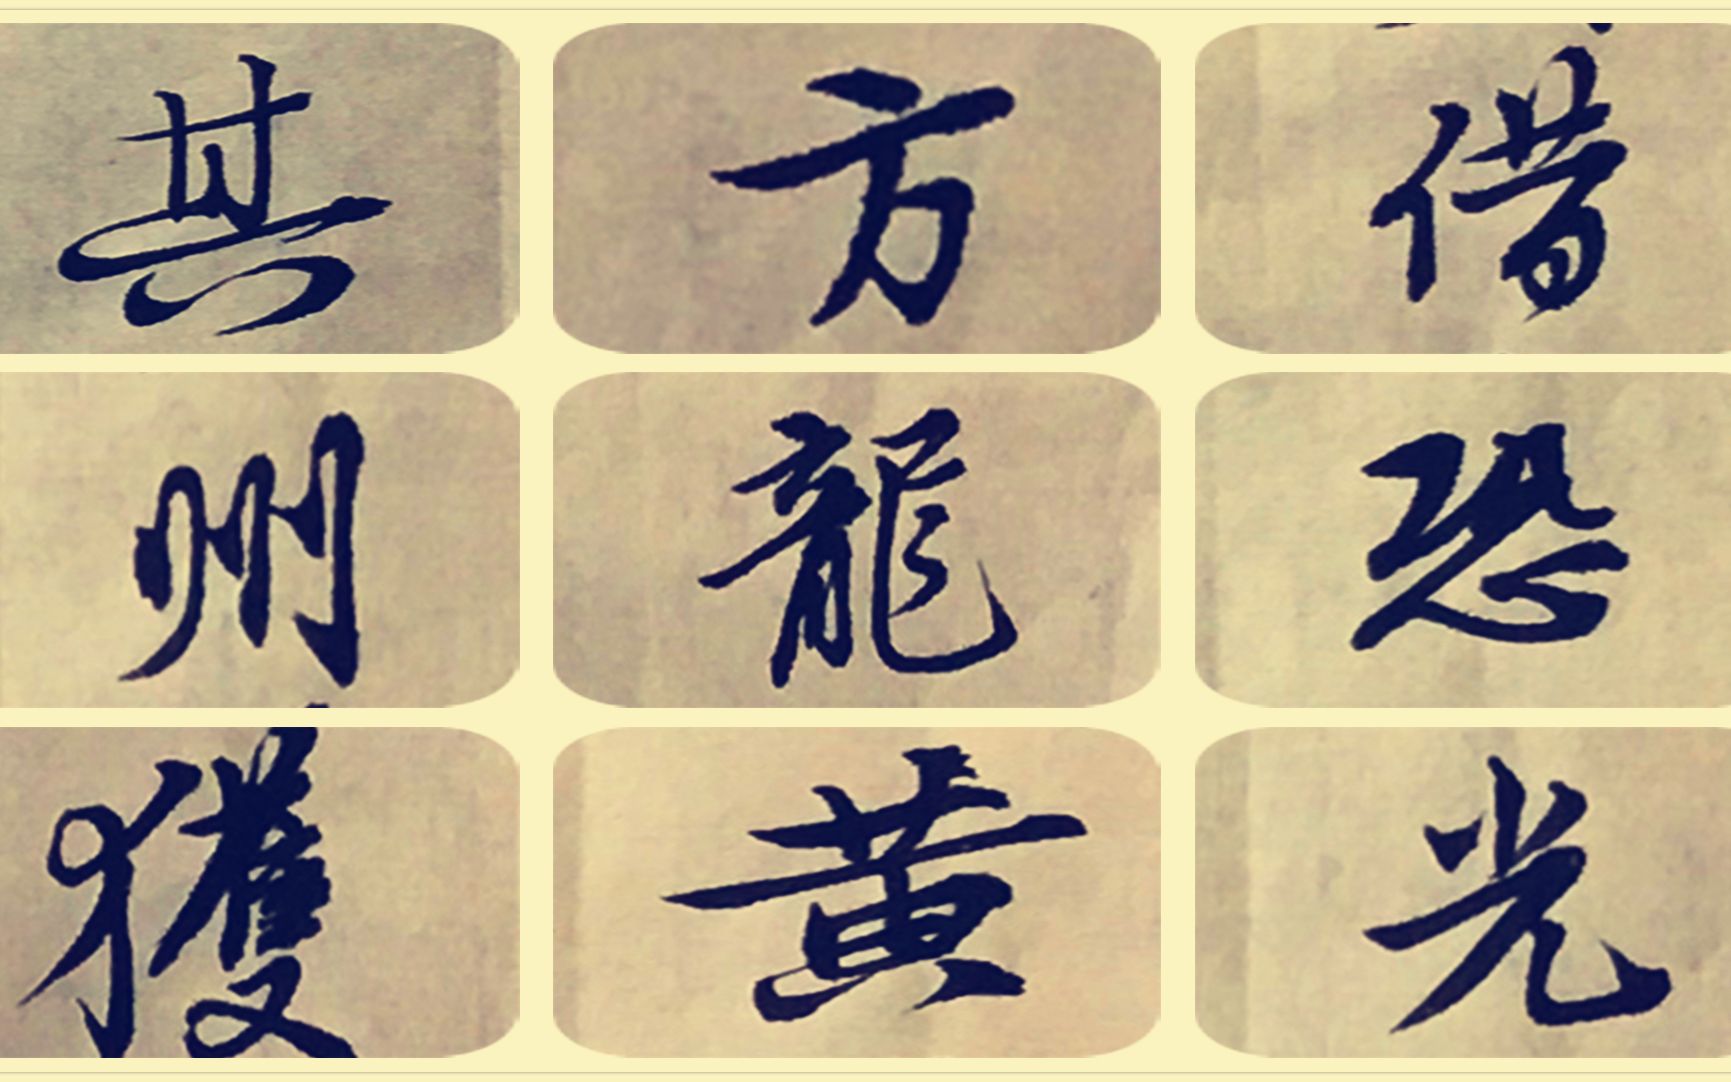 其 方 借
州 龍 恐
獲 黃 光